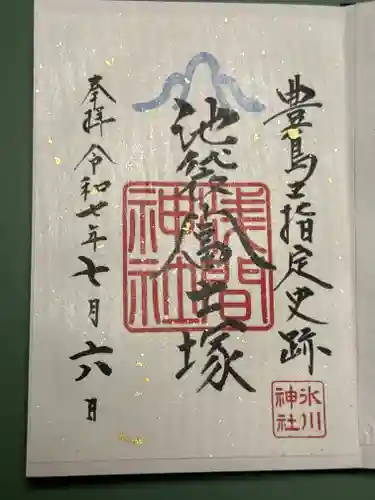 豊島区指定史跡
池袋富士塚
浅間神社
奉拝 令和七年七月六日
氷川神社